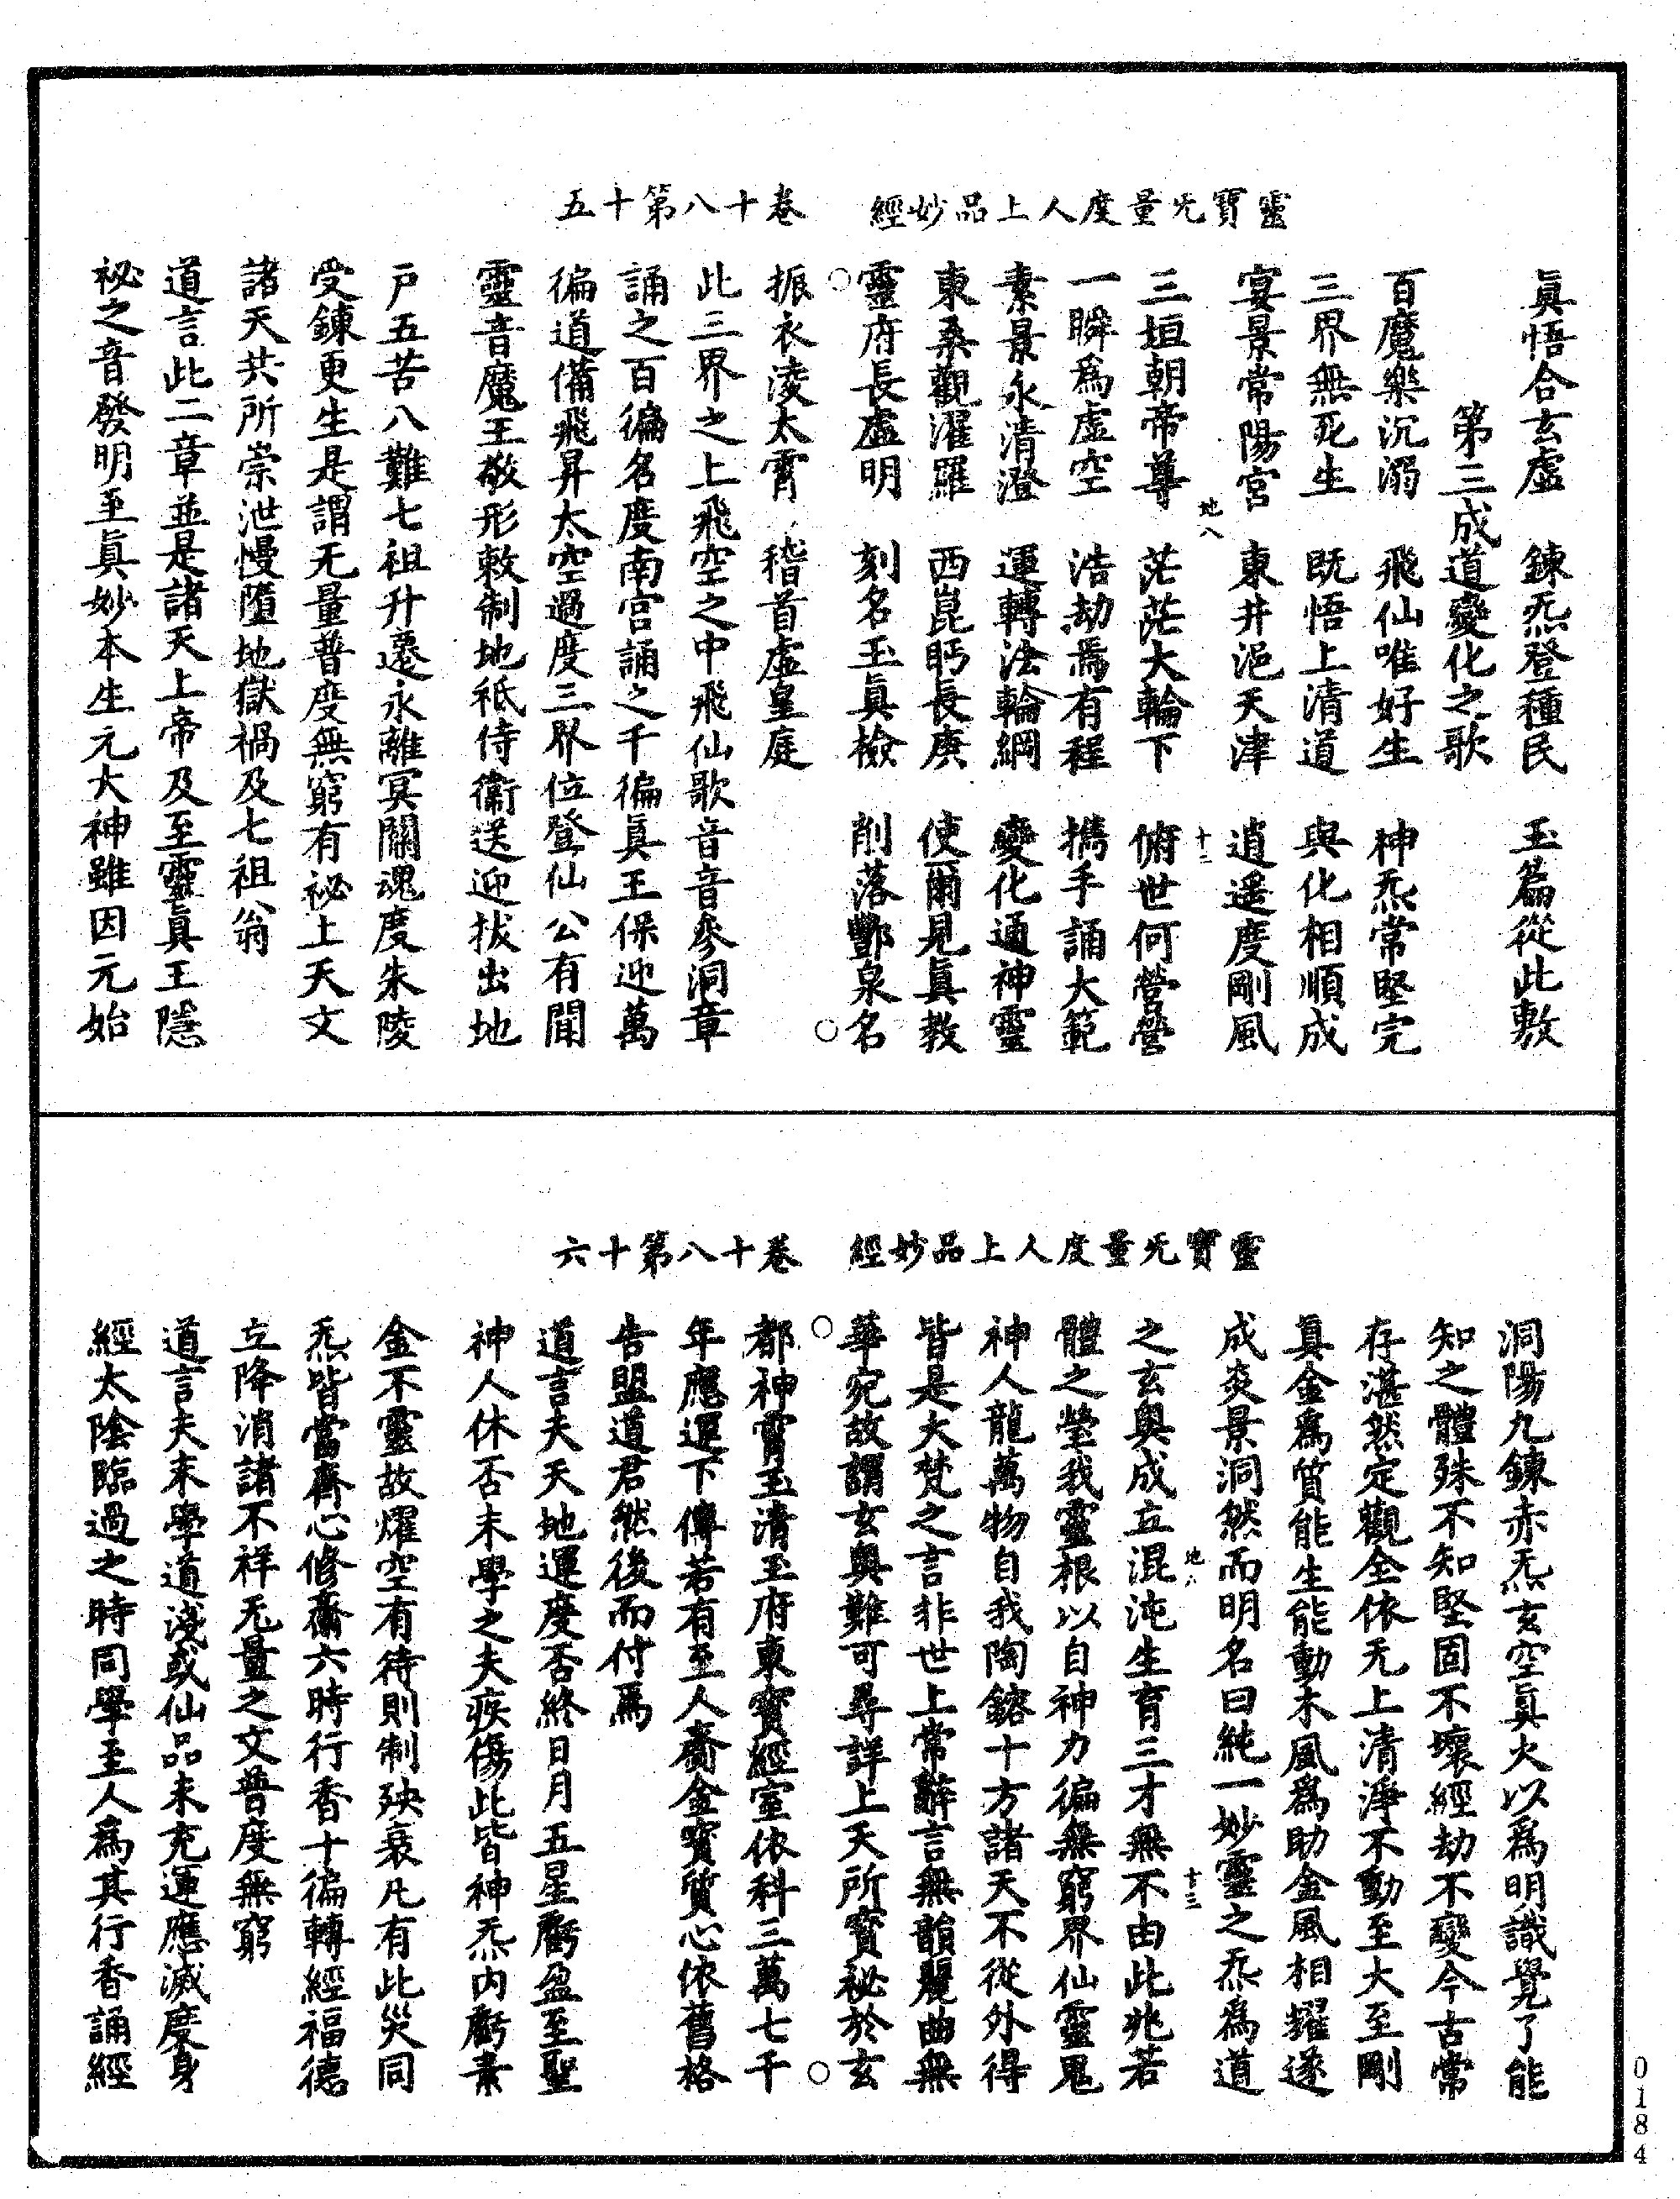 靈寶无量度人上品妙經　卷十八第十五
眞悟合玄虛　鍊炁登種民　玉篇從此敷
第三成道變化之歌
百魔樂沉溺　飛仙唯好生　神炁常堅完
三界無死生　既悟上清道　與化相順成
宴景常陽宮　東井浥天津　逍遙度剛風
地八　十二
三垣朝帝尊　茫茫大輪下　俯世何營營
一瞬爲虛空　浩劫焉有程　攜手誦大範
素景永清澄　運轉法輪綱　變化通神靈
東桑觀濯羅　西崑眄長庚　使爾見眞教
靈府長虛明　刻名玉眞檢　削落酆泉名
振衣淩太霄　稽首虛皇庭
此三界之上飛空之中飛仙歌音音參洞章
誦之百徧名度南宮誦之千徧眞王保迎萬
徧道備飛昇太空過度三界位登仙公有聞
靈音魔王敬形敕制地祇侍衞送迎拔出地
戶五苦八難七祖升遷永離冥關魂度朱陵
受鍊更生是謂无量普度無窮有祕上天文
諸天共所崇泄慢墮地獄禍及七祖翁
道言此二章並是諸天上帝及至靈眞王隱
祕之音發明至眞妙本生元大神雖因元始
靈寶无量度人上品妙經　卷十八第十六
洞陽九鍊赤炁玄空眞火以爲明識覺了能
知之體殊不知堅固不壞經劫不變今古常
存湛然定觀全依无上清淨不動至大至剛
眞金爲質能生能動木風爲助金風相耀遂
成炎景洞然而明名曰純一妙靈之炁爲道
地八　十三
之玄奧成立混沌生育三才無不由此兆若
體之瑩我靈根以自神力徧無窮界仙靈鬼
神人龍萬物自我陶鎔十方諸天不從外得
皆是大梵之言非世上常辭言無韻麗曲無
華宛故謂玄奧難可尋詳上天所寶祕於玄
都神霄玉清玉府東寶經室依科三萬七千
年應運下傳若有至人齎金寶質心依舊格
告盟道君然後而付焉
道言夫天地運度否終日月五星虧盈至聖
神人休否末學之夫疾傷此皆神炁内虧素
金不靈故燿空有待則制殃衰凡有此災同
炁皆當齊心修齋六時行香十徧轉經福德
立降消諸不祥无量之文普度無窮
道言夫末學道淺或仙品未充運應滅度身
經太陰臨過之時同學至人爲其行香誦經
0184